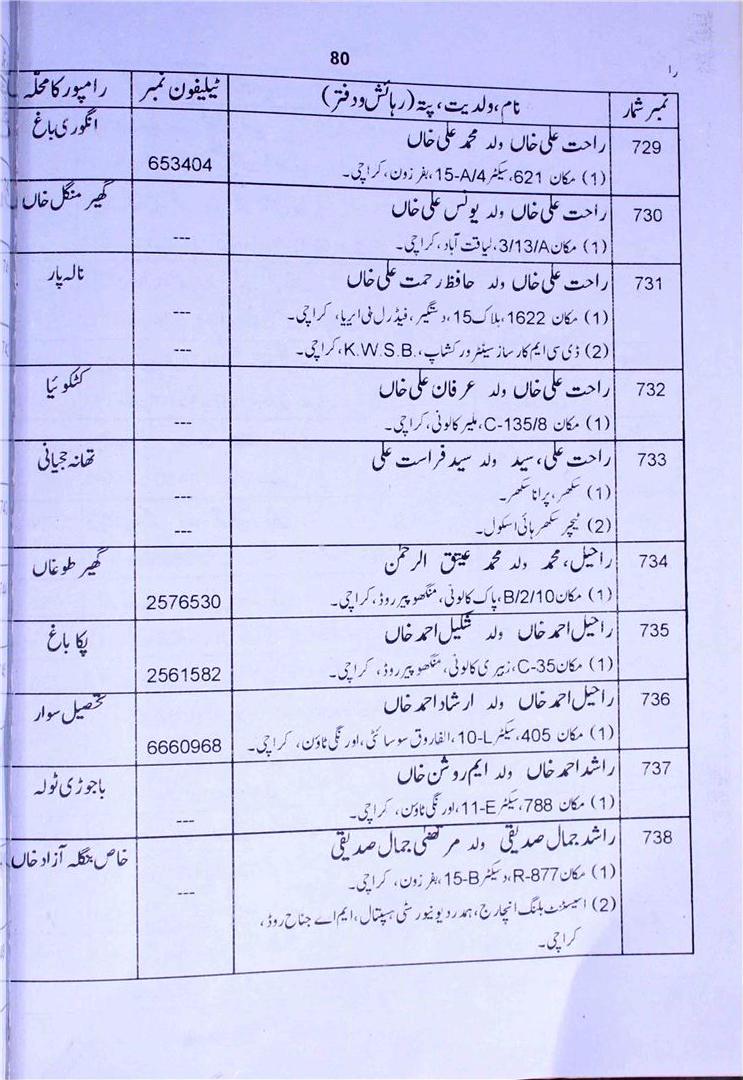 80
را
نمبر شمار	نام، ولدیت، پتہ (رہائش و دفتر)	ٹیلیفون نمبر	رامپور کا محلّہ
729	راحت علی خاں ولد محمد علی خاں	انگوری باغ
(1) مکان 621، سیکٹر 15-A/4، بفرزون، کراچی۔	653404
730	راحت علی خاں ولد یونس علی خاں	گھیر منگل خاں
(1) مکان 3/13/A، لیاقت آباد، کراچی۔	---
731	راحت علی خاں ولد حافظ رحمت علی خاں	نالہ پار
(1) مکان 1622، بلاک 15، دستگیر، فیڈرل بی ایریا، کراچی۔	---
(2) ڈی سی ایم کارساز سینٹر ورکشاپ، K.W.S.B.، کراچی۔	---
732	راحت علی خاں ولد عرفان علی خاں	کٹکوئیا
(1) مکان C-135/8، ملیر کالونی، کراچی۔	---
733	راحت علی، سید ولد سید فراست علی	تھانہ
(1) سکھر، پرانا سکھر۔	---
(2) ٹیچر سکھر ہائی اسکول۔	---
734	راحیل، محمد ولد محمد عتیق الرحمٰن	گھیر طوغاں
(1) مکان B/2/10، پاک کالونی، منگھوپیر روڈ، کراچی۔	2576530
735	راحیل احمد خاں ولد شکیل احمد خاں	پکا باغ
(1) مکان C-35، زبیری کالونی، منگھوپیر روڈ، کراچی۔	2561582
736	راحیل احمد خاں ولد ارشاد احمد خاں	تحصیل سوار
(1) مکان 405، سیکٹر 10-L، الفاروق سوسائٹی، اورنگی ٹاؤن، کراچی۔	6660968
737	راشد احمد خاں ولد ایم روشن خاں	باجوڑی ٹولہ
(1) مکان 788، سیکٹر 11-E، اورنگی ٹاؤن، کراچی۔	---
738	راشد جمال صدیقی ولد مرتضیٰ جمال صدیقی	خاص بنگلہ آزاد خاں
(1) مکان R-877، سیکٹر 15-B، بفرزون، کراچی۔	---
(2) اسسٹنٹ بلنگ انچارج، ہمدرد یونیورسٹی ہسپتال، ایم اے جناح روڈ،
کراچی۔